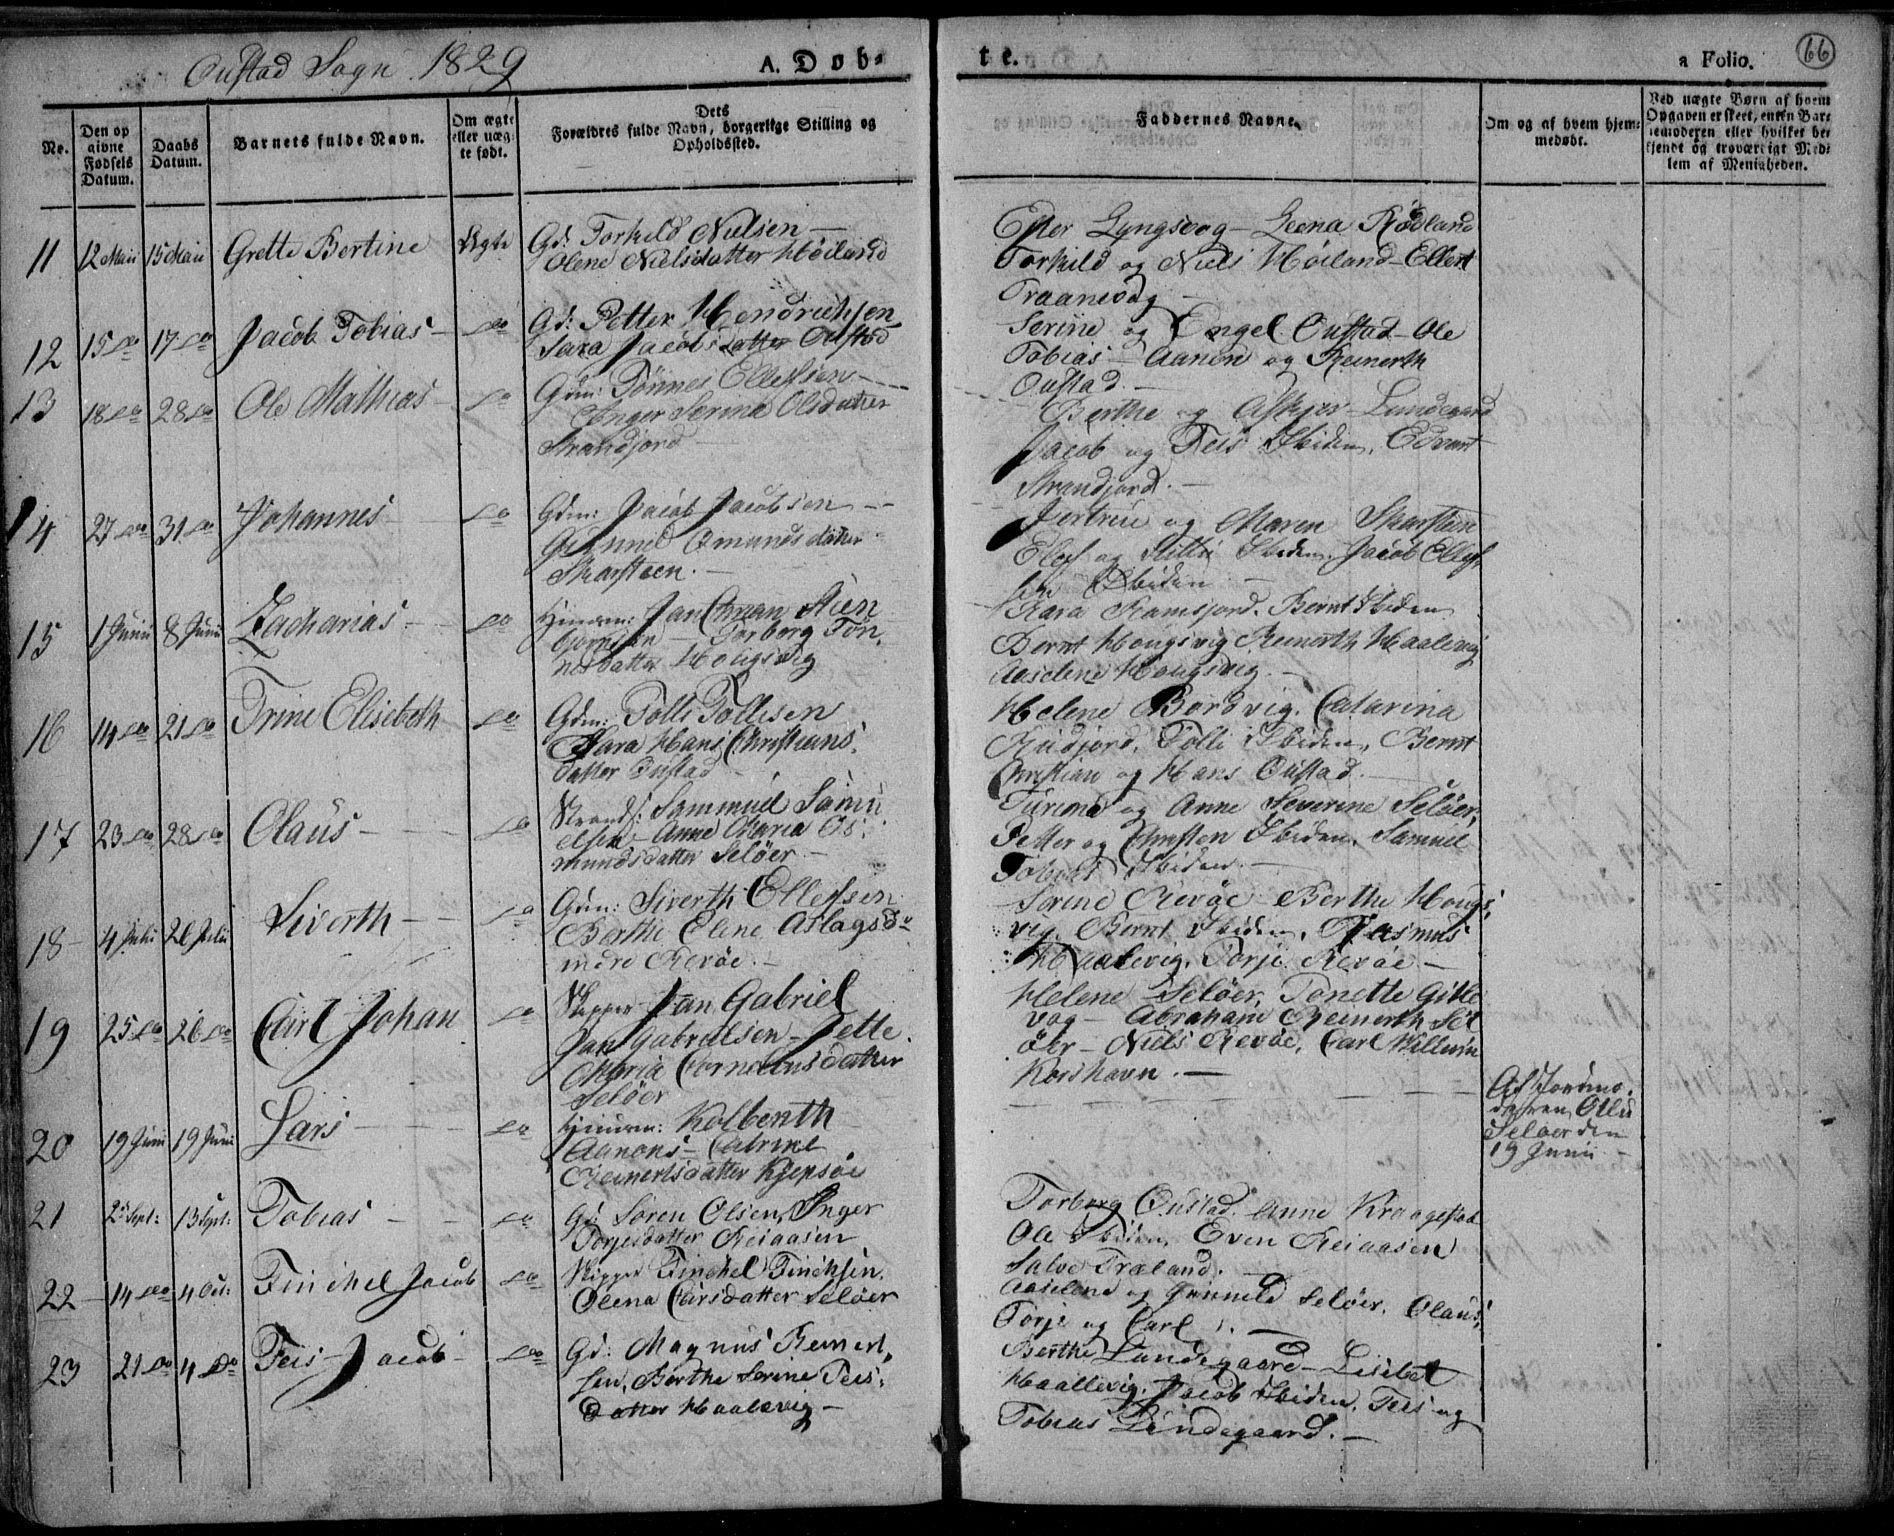 Oustad Sogn 1829
A. Døb-
te.
a Folio. 66
No.
Den op
givne
Fødsels
Datum.
Daabs
Datum.
Barnets fulde Navn.
Om ægte
eller uæg-
te født.
Dets
Forældres fulde Navn, borgerlige Stilling og
Opholdssted.
Faddernes Navne.
Om og af hvem hjem-
medøbt.
Ved uægte Børn af hvem
Opgaven er skeet, enten Bar-
nemoderen eller hvilket be-
kjendt og troværdigt Med-
lem af Menigheden.
11 12 Maii 15 Maii Grette Bertine Ægte Gd: Torkild Nielsen —
Olene Nielsdatter Høiland
Ester Lyngsvog – Leena Rødland
Torkild og Niels Høiland – Ellert
Traanevog —
12 15 do 17 do Jacob Tobias — do Gd: Petter Hendrichsen
Sara Jacobsdatter Oustad
Serine og Engel Oustad – Ole
Tobias – Aanon og Reinerth
Oustad. —
13 18 do 28 do Ole Mathias — do Gdm: Tønnes Ellefsen —
Inger Serina Olsdatter
Strandjord —
Berthe og Asbjør Lundegaard
Jacob og Teis Ibiden, Edvart
Strandjord. —
14 27 do 31 do Johannes — do Gdm: Jacob Jacobsen —
Gunned Omundsdatter
Skarsteen. —
Jertrue og Maren Skarsteen
Ellef og Ibiden, Jacob Ellef-
sen Ibiden —
15 1 Junii 8 Junii Zacharias — do Huusm: Jan Chrian Stien
bjørnsen — Torborg Tøn-
nesdatter Hougsvig
Sara Ramsjord. Bernt Ibiden
Bernt Hougsvig Reinerth Haalevig
Aaselene Hougsvig. —
16 14 do 21 do Trine Elisebeth do Gdm: Tolli Tollisen
Sara Hans Christians-
datter Oustad —
Helene Bordvig. Catarina
Tolli Ibiden, Bernt
Christian og Hans Oustad. —
17 23 do 28 do Olaus — do Strands: Sammuel Samu
elsen – Anne Maria Os-
mundsdatter Seløer. —
og Anne Severine Seløer,
Petter og Christen Ibiden. Samuel
Tobias Ibiden. —
18 4 Julii 26 Julii Siverth — do Gdm: Siverth Ellefsen
Berthe Elene Aslagsdr
indre Revøe. —
Serine Revøe – Berthe Hougs-
vig. Bernt Ibiden, Rasmus
Haalevig, Torje Revøe —
19 25 do 26 do Carl Johan do Skipper Jan Gabriel
Jan Gabrielsen – Jette
Maria Corneliusdatter
Seløer
Helene Seløer, Tonette Gitle
vog – Abraham Reinerth Sel
øer – Niels Revøe, Carl Willum
Korshavn. —
20 19 Junii 19 Junii Lars — do Huusm: Kolbenth
Aanons – Catrine
Reinertsdatter Kjepsøe
Af Jordmo-
deren
Seløer den
19 Junii —
21 2 Sept: 13 Sept: Tobias — do Gd: Søren Olsen, Inger
Torjesdatter Reiaasen
Torborg Oustad. Anne Kragestad
Ole Ibiden, Even Reiaasen
Salve Træland. —
22 14 do 4 Oct: Tinichel Jacob do Skipper Tinichel Tinichsen,
Olena Larsdatter Seløer
Aaselene og Gunneld Seløer. Olaus,
Torje og Carl. —
23 21 do 4 do Teis Jacob — do Gd: Magnus Reinert-
sen, Berthe Serine Teis-
datter Haalevig —
Berthe Lundegaard – Lisebet
Haallevig. Jacob Ibiden. Teis og
Tobias Lundegaard. —